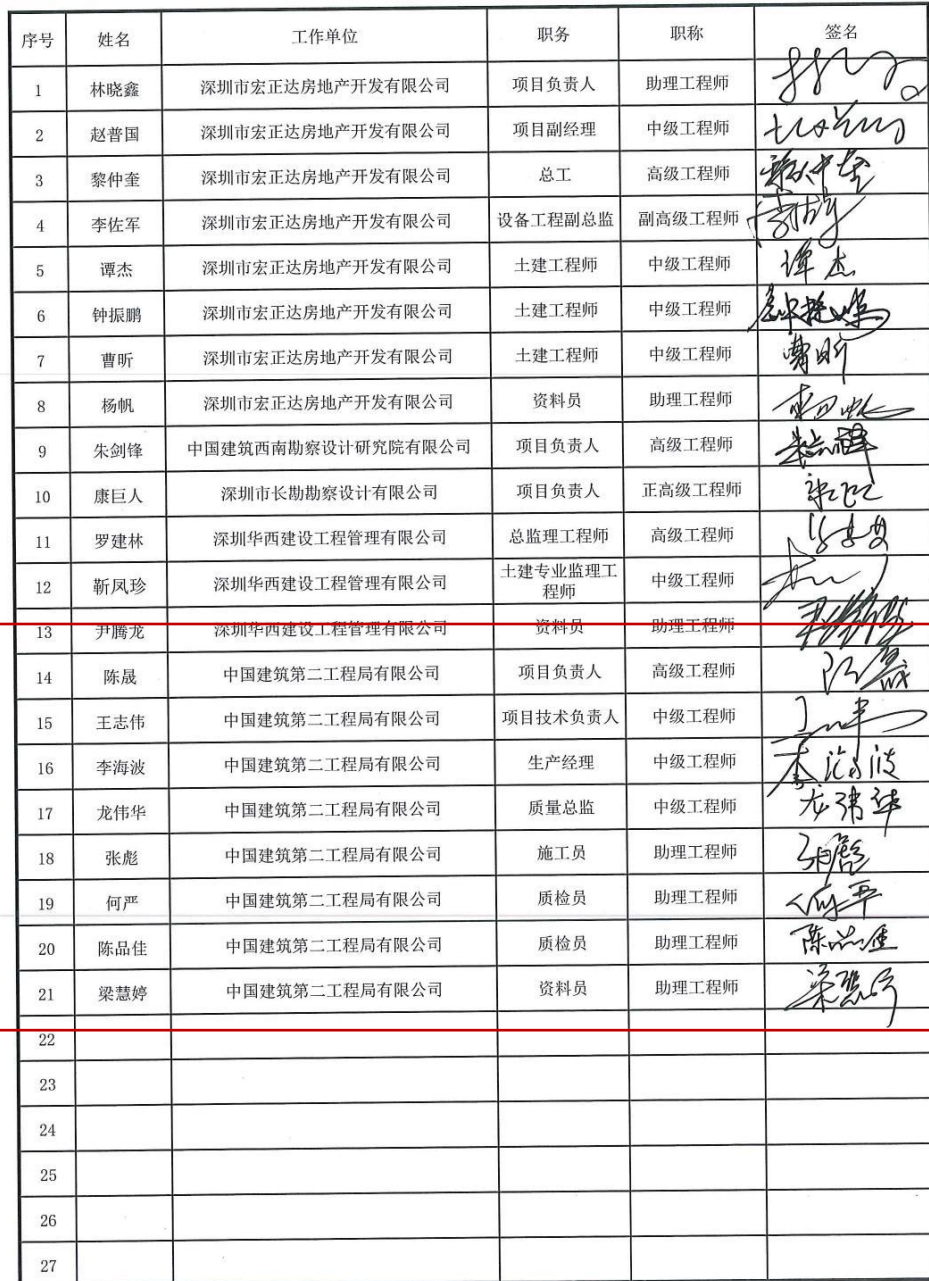 序号 姓名 工作单位 职务 职称 签名
1 林晓鑫 深圳市宏正达房地产开发有限公司 项目负责人 助理工程师
2 赵普国 深圳市宏正达房地产开发有限公司 项目副经理 中级工程师
3 黎仲奎 深圳市宏正达房地产开发有限公司 总工 高级工程师 黎仲奎
4 李佐军 深圳市宏正达房地产开发有限公司 设备工程副总监 副高级工程师 李佐军
5 谭杰 深圳市宏正达房地产开发有限公司 土建工程师 中级工程师 谭杰
6 钟振鹏 深圳市宏正达房地产开发有限公司 土建工程师 中级工程师 钟振鹏
7 曹昕 深圳市宏正达房地产开发有限公司 土建工程师 中级工程师 曹昕
8 杨帆 深圳市宏正达房地产开发有限公司 资料员 助理工程师 杨帆
9 朱剑锋 中国建筑西南勘察设计研究院有限公司 项目负责人 高级工程师
10 康巨人 深圳市长勘勘察设计有限公司 项目负责人 正高级工程师
11 罗建林 深圳华西建设工程管理有限公司 总监理工程师 高级工程师
12 靳凤珍 深圳华西建设工程管理有限公司 土建专业监理工
程师 中级工程师
13 尹腾龙 深圳华西建设工程管理有限公司 资料员 助理工程师
14 陈晟 中国建筑第二工程局有限公司 项目负责人 高级工程师 陈晟
15 王志伟 中国建筑第二工程局有限公司 项目技术负责人 中级工程师
16 李海波 中国建筑第二工程局有限公司 生产经理 中级工程师 李海波
17 龙伟华 中国建筑第二工程局有限公司 质量总监 中级工程师 龙伟华
18 张彪 中国建筑第二工程局有限公司 施工员 助理工程师 张彪
19 何严 中国建筑第二工程局有限公司 质检员 助理工程师 何严
20 陈品佳 中国建筑第二工程局有限公司 质检员 助理工程师 陈品佳
21 梁慧婷 中国建筑第二工程局有限公司 资料员 助理工程师 梁慧婷
22
23
24
25
26
27